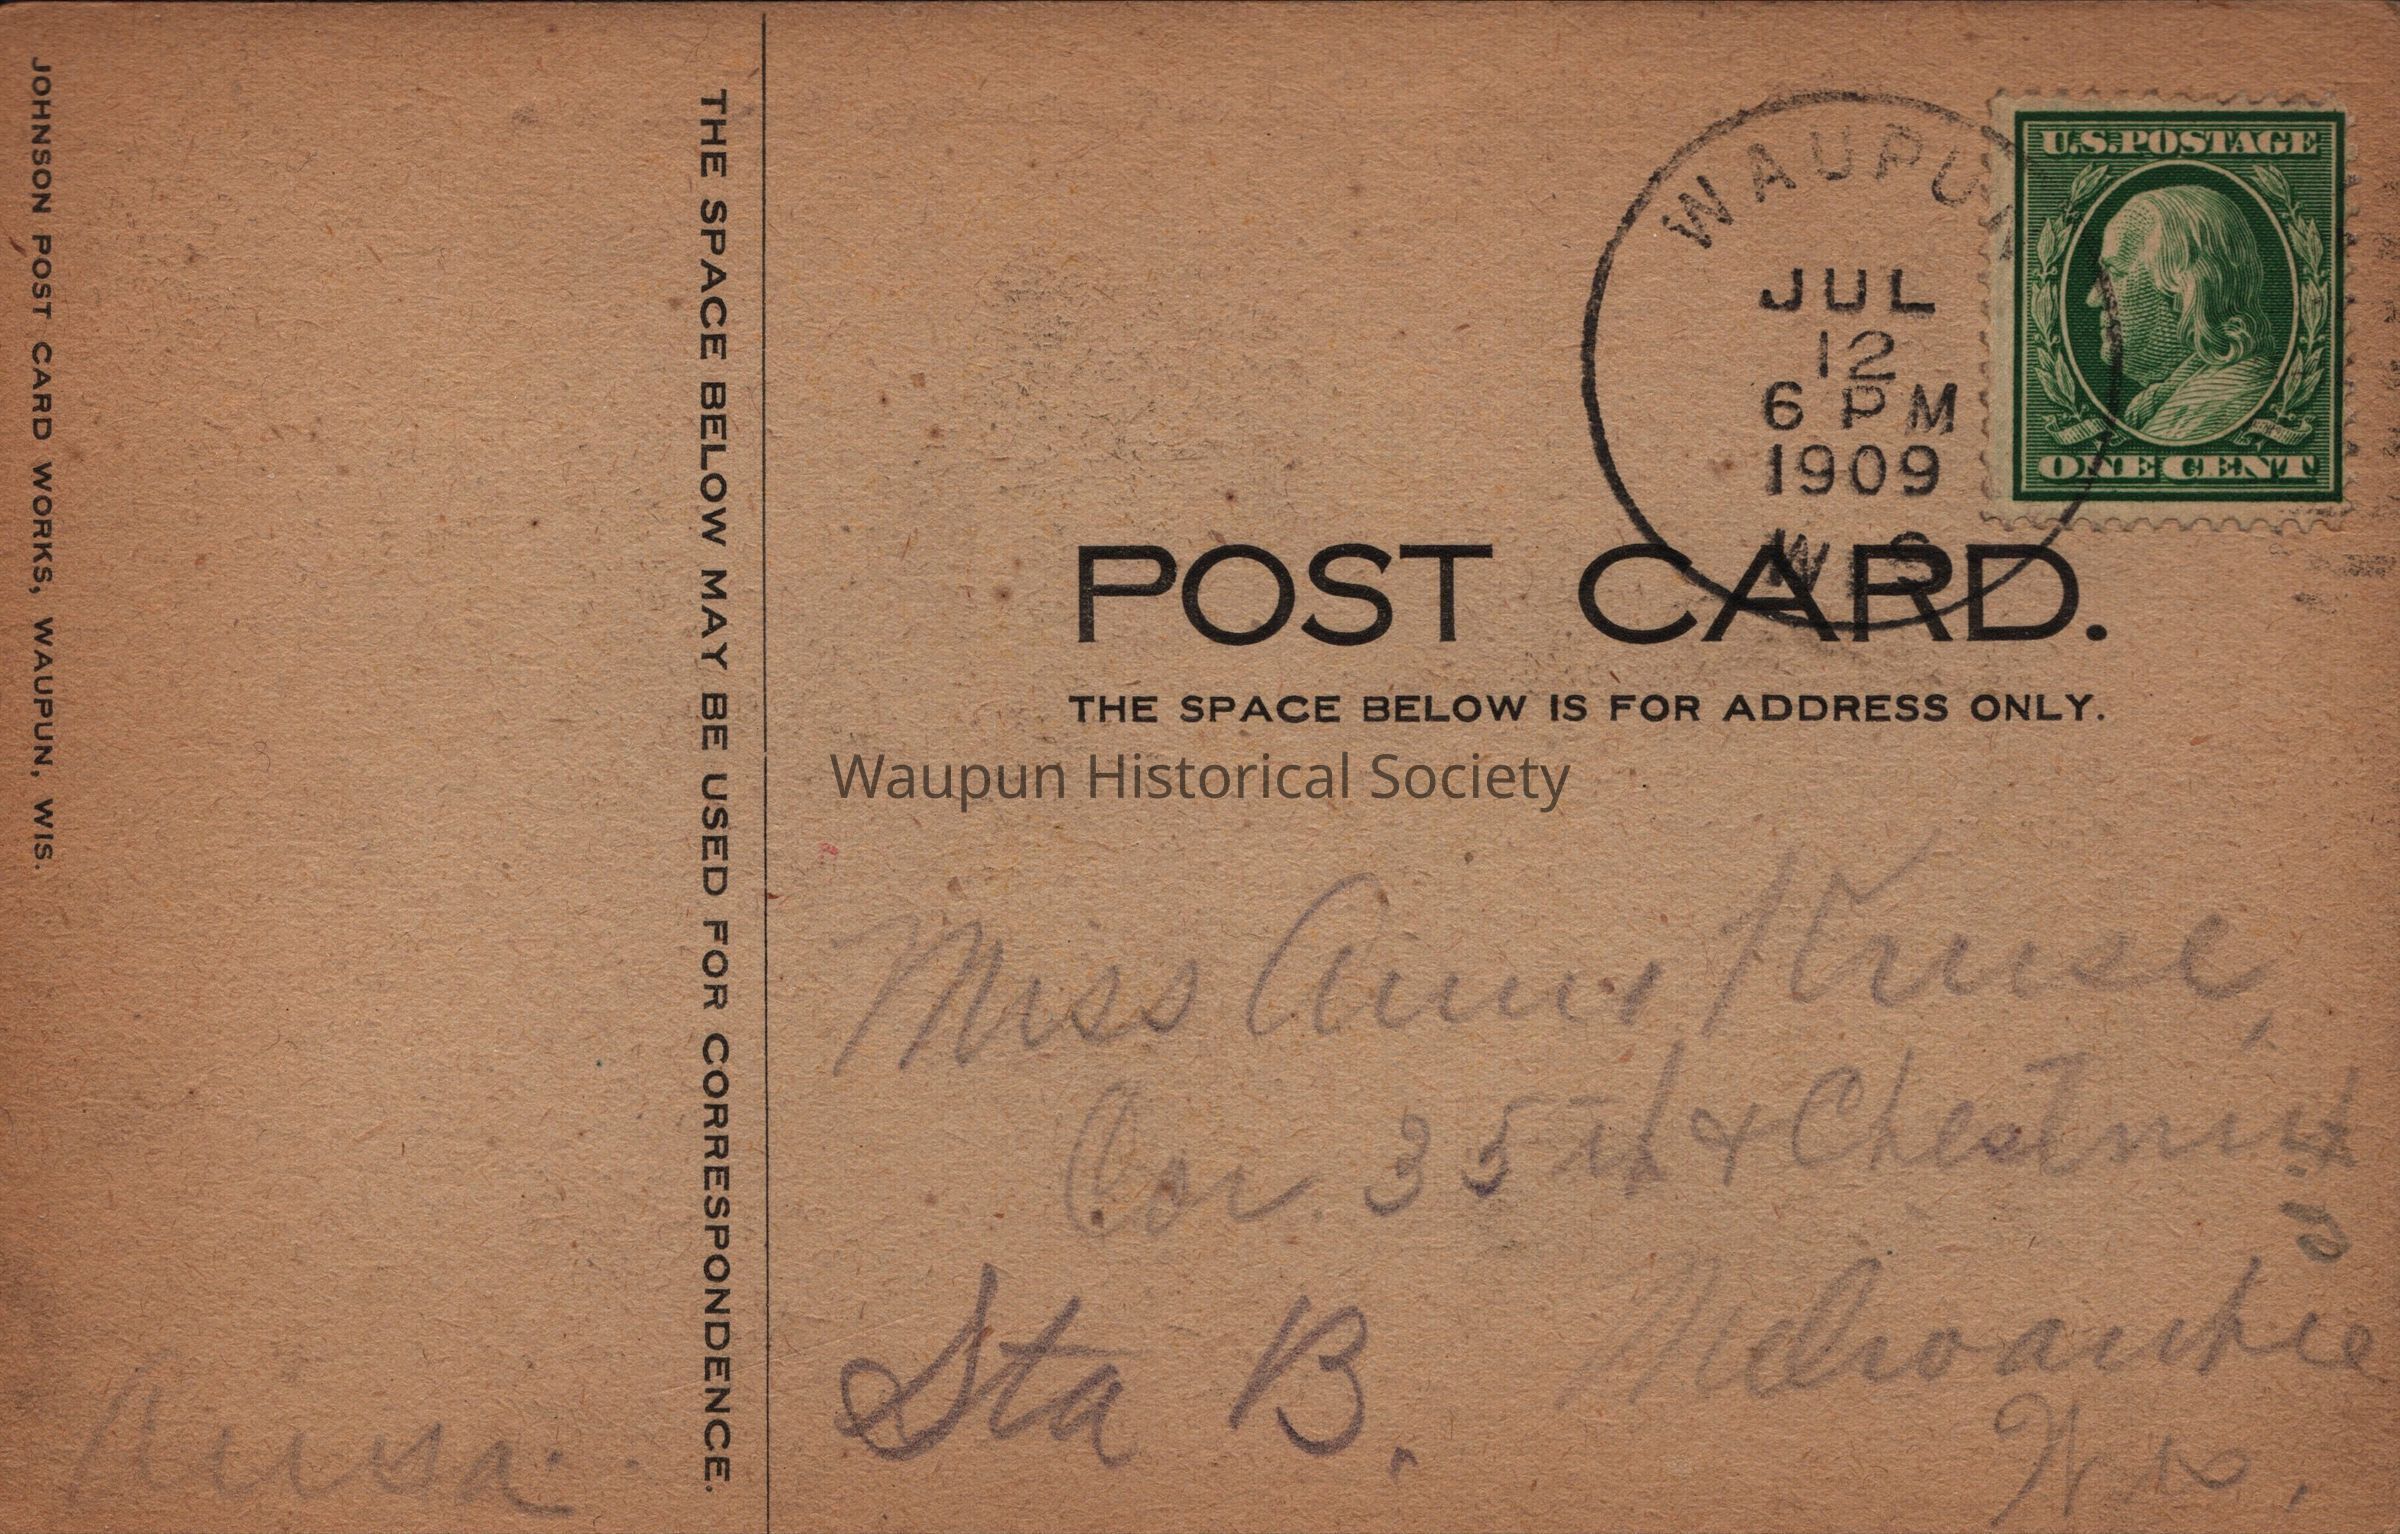 JOHNSON POST CARD WORKS, WAUPUN, WIS.
THE SPACE BELOW MAY BE USED FOR CORRESPONDENCE.
WAUPUN
JUL
12
6 PM
1909
WIS
U.S. POSTAGE
ONE CENT
POST CARD.
THE SPACE BELOW IS FOR ADDRESS ONLY.
Waupun Historical Society
Miss Kruse,
Cor. 35th & Chestnut
Milwaukee
Sta B.
Wis.